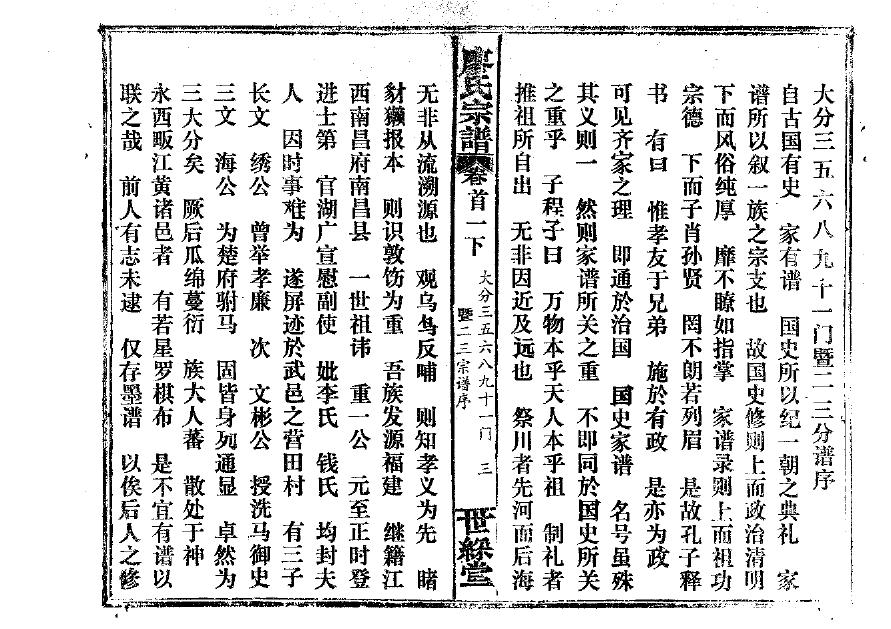 大分三五六八九十一门暨二三分谱序
自古国有史 家有谱 国史所以纪一朝之典礼 家
谱所以叙一族之宗支也 故国史修则上而政治清明
下而风俗纯厚 靡不瞭如指掌 家谱录则上而祖功
宗德 下而子肖孙贤 罔不朗若列眉 是故孔子释
书 有曰 惟孝友于兄弟 施於有政 是亦为政
可见齐家之理 即通於治国 国史家谱 名号虽殊
其义则一 然则家谱所关之重 不即同於国史所关
之重乎 子程子曰 万物本乎天人本乎祖 制礼者
推祖所自出 无非因近及远也 祭川者先河而后海
廖氏宗譜 卷首一下 大分三五六八九十一门暨二三宗谱序 三 世綵堂
无非从流溯源也 观乌鸟反哺 则知孝义为先 睹
豺獭报本 则识敦饬为重 吾族发源福建 继籍江
西南昌府南昌县 一世祖讳 重一公 元至正时登
进士第 官湖广宣慰副使 妣李氏 钱氏 均封夫
人 因时事难为 遂屏迹於武邑之营田村 有三子
长文 绣公 曾举孝廉 次 文彬公 授洗马御史
三文 海公 为楚府驸马 固皆身列通显 卓然为
三大分矣 厥后瓜绵蔓衍 族大人蕃 散处于神
永西畈江黄诸邑者 有若星罗棋布 是不宜有谱以
联之哉 前人有志未逮 仅存墨谱 以俟后人之修